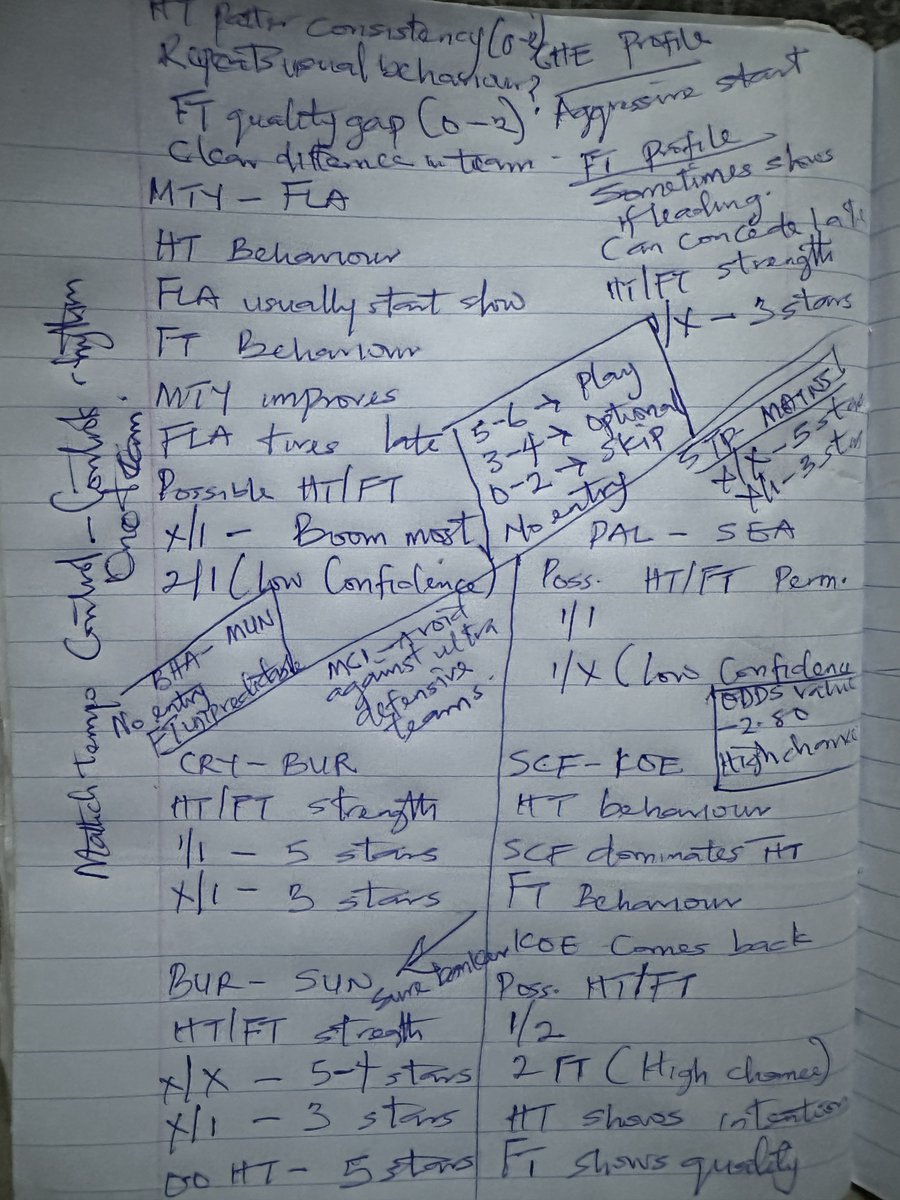 HT Patter consistency (0-2)
Repeats usual behaviour?
FT quality gap (0-2)
Clear difference in team
MTY - FLA
HT Behaviour
FLA usually start slow
FT Behaviour
MTY improves
FLA tires late
Possible HT/FT
X/1 - Boom most
2/1 (Low Confidence)
CHE Profile
Aggressive start
FT Profile
Sometimes slows
if leading.
Can concede late
HT/FT strength
1/X - 3 stars
5-6 → Play
3-4 → Optional
0-2 → SKIP
No entry
STR MAINS
X/X - 5 star
X/1 - 3 star
Match tempo Control - Controls - rhythm
One team.
BHA - MUN
No entry
FT unpredictable
MCI - Avoid
against ultra
defensive
teams.
CRY - BUR
HT/FT strength
1/1 - 5 stars
X/1 - 3 stars
BUR - SUN
HT/FT stregth
X/X - 5-4 stars
X/1 - 3 stars
00 HT - 5 stars
PAL - SEA
Poss. HT/FT Perm.
1/1
1/X (Low Confidence
ODDS value
-2.80
High chance
SCF - KOE
HT behaviour
SCF dominates HT
FT Behaviour
KOE Comes back
Sure banker
Poss. HT/FT
1/2
2 FT (High chance)
HT shows intention
FT shows quality